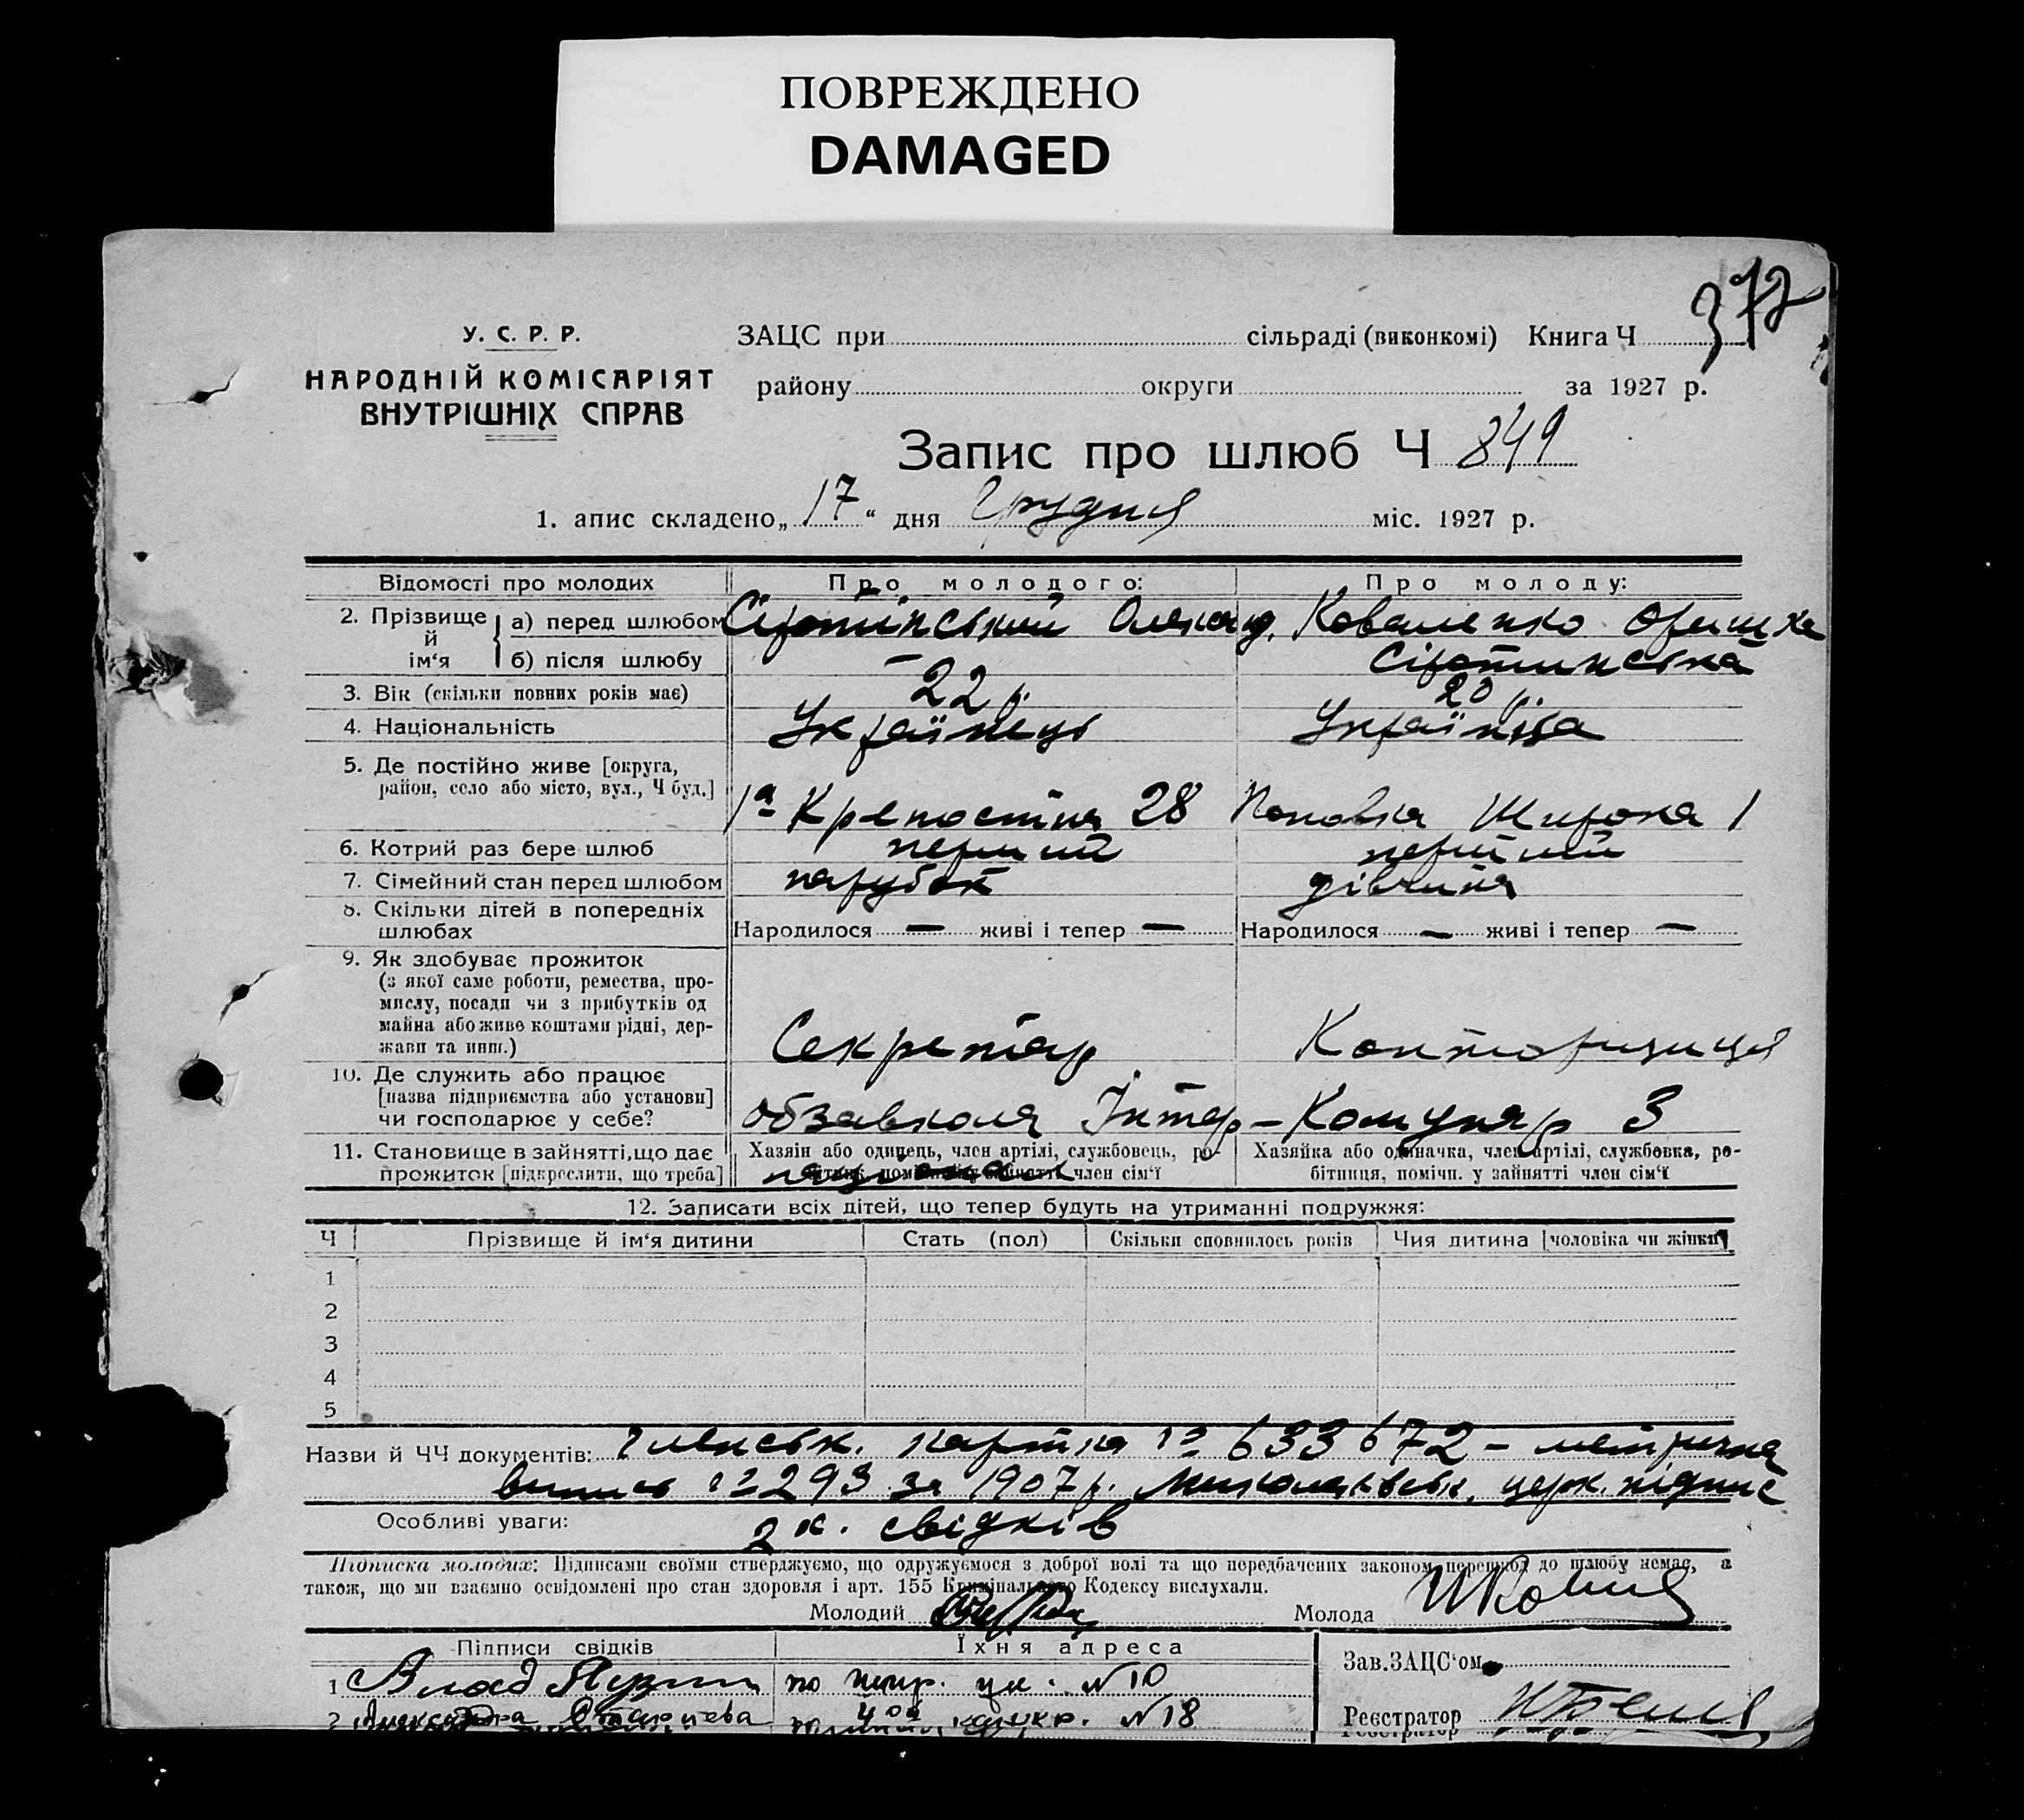 ПОВРЕЖДЕНО
DAMAGED
377
У. С. Р. Р.
НАРОДНІЙ КОМІСАРІЯТ
ВНУТРІШНІХ СПРАВ
ЗАЦС при сільраді (виконкомі) Книга Ч
району округи за 1927 р.
Запис про шлюб Ч 849
1. апис складено „17“ дня Грудня міс. 1927 р.
Відомості про молодих Про молодого: Про молоду:
2. Прізвище й ім‘я а) перед шлюбом Сіротінський Олександ. Коваленко Оришка
б) після шлюбу — Сіротинська
3. Вік (скільки повних років має) 22 р. 20 р.
4. Національність Українець Українка
5. Де постійно живе [округа,
район, село або місто, вул., Ч буд.] 1а Крепостна 28 Поповка Широка 1
6. Котрий раз бере шлюб перший перший
7. Сімейний стан перед шлюбом парубок дівчина
8. Скільки дітей в попередніх
шлюбах Народилося — живі і тепер — Народилося — живі і тепер —
9. Як здобуває прожиток
(з якої саме роботи, ремества, про-
мислу, посади чи з прибутків од
майна або живе коштами рідні, дер-
жави та инш.) Секретар Конторщиця
10. Де служить або працює
[назва підприємства або установи]
чи господарює у себе? Інтер- Комунар 3
11. Становище в зайнятті, що дає
прожиток [підкреслити, що треба]
Хазяін або одинець, член артілі, службовець, ро-
член сім‘ї
Хазяйка або одиначка, член артілі, службовка, ро-
бітниця, помічн. у зайнятті член сім‘ї
12. Записати всіх дітей, що тепер будуть на утриманні подружжя:
Ч Прізвище й ім‘я дитини Стать (пол) Скільки сповнилось років Чия дитина [чоловіка чи жінки]
1
2
3
4
5
Назви й ЧЧ документів: членськ. картка № 633672 – метрична
випись № 293 за 1907 р. Миколаєвськ. церк. підпис
Особливі уваги: 2х. свідків
Підписка молодих: Підписами своїми стверджуємо, що одружуємося з доброї волі та що передбачених законом перешкод до шлюбу немає, а
також, що ми взаємно освідомлені про стан здоровля і арт. 155 Кримінального Кодексу вислухали.
Молодий Молода
Підписи свідків Їхня адреса
Зав. ЗАЦС‘ом
1 Влад № 10
2 Александра № 18
Реєстратор